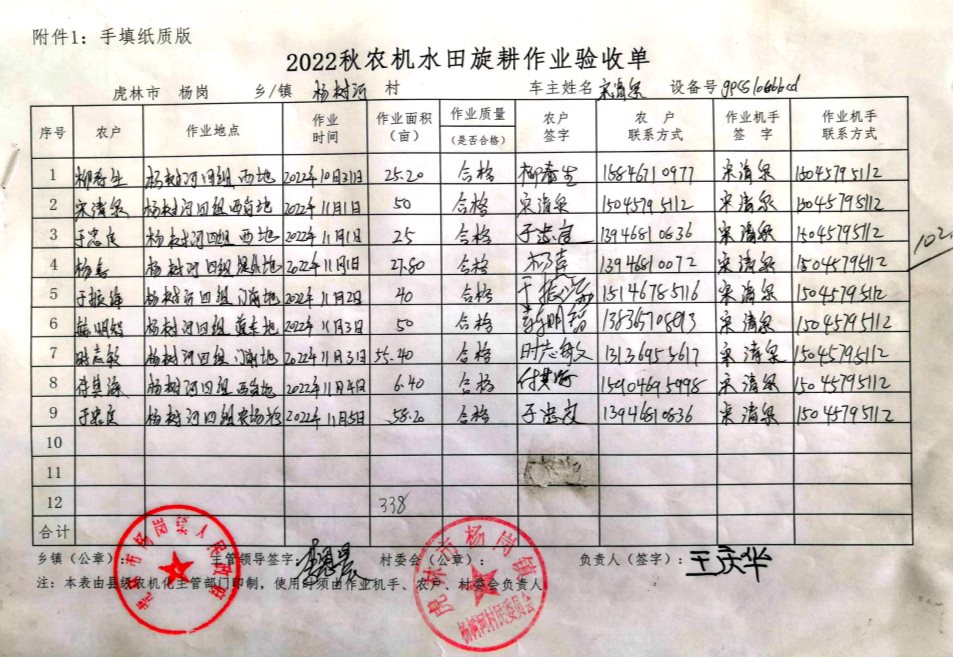 附件1：手填纸质版
2022秋农机水田旋耕作业验收单
虎林市 杨岗 乡/镇 杨树河 村 车主姓名 宋清泉 设备号
序号 农户 作业地点 作业时间 作业面积（亩） 作业质量（是否合格） 农户签字 农户联系方式 作业机手签字 作业机手联系方式
1 柳春生 杨树河四组西地 2022年10月31日 25.20 合格 柳春生 15846710977 宋清泉 15045795112
2 宋清泉 杨树河四组西岗地 2022年11月1日 50 合格 宋清泉 15045795112 宋清泉 15045795112
3 于忠良 杨树河四组西地 2022年11月1日 25 合格 于忠良 13946810836 宋清泉 15045795112
4 杨春 杨树河四组 2022年11月1日 27.80 合格 杨春 13946810072 宋清泉 15045795112
5 于振海 杨树河四组门前地 2022年11月2日 40 合格 于振海 15146785116 宋清泉 15045795112
6 杨树河四组 2022年11月3日 50 合格 13836708813 宋清泉 15045795112
7 时志敏 杨树河四组门前地 2022年11月3日 55.40 合格 时志敏 13136955617 宋清泉 15045795112
8 付其海 杨树河四组西岗地 2022年11月4日 6.40 合格 付其海 15904695998 宋清泉 15045795112
9 于忠良 杨树河四组 2022年11月5日 58.20 合格 于忠良 13946810836 宋清泉 15045795112
102.
10
11
12 338
合计
乡镇（公章）： 主管领导签字： 村委会（公章）： 负责人（签字）：王庆华
注：本表由县级农机化主管部门印制，使用时须由作业机手、农户、村委会负责人
虎林市杨岗镇人民政府
虎林市杨岗镇
杨树河村民委员会